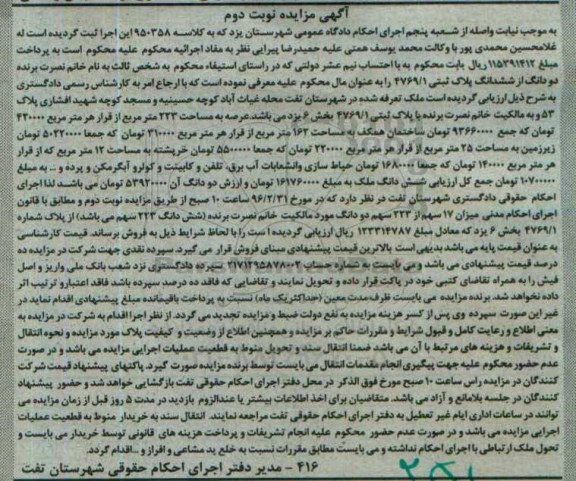 آگهی مزایده نوبت دوم
به موجب نیابت واصله از شعبه پنجم اجرای احکام دادگاه عمومی شهرستان یزد که به کلاسه ۹۵۰۳۵۸ این اجرا ثبت گردیده است له
غلامحسین محمدی پور با وکالت محمد یوسف همتی علیه حمیدرضا پیرایی نظر به مفاد اجرائیه محکوم علیه محکوم است به پرداخت
مبلغ ۱۱۵۳۹۱۴۱۲ ریال بابت محکوم به با احتساب نیم عشر دولتی که در راستای استیفاء محکوم به شخص ثالث به نام خانم نصرت برنده
دو دانگ از ششدانگ پلاک ثبتی ۴۷۶۹/۱ را به عنوان مال محکوم علیه معرفی نموده است که با ارجاع امر به کارشناس رسمی دادگستری
به شرح ذیل ارزیابی گردیده است ملک تعرفه شده در شهرستان تفت محله غیاث آباد کوچه حسینیه و مسجد کوچه شهید افشاری پلاک
۵۳ و به مالکیت خانم نصرت برنده با پلاک ثبتی ۴۷۶۹/۱ بخش ۶ یزد می باشد.عرصه به مساحت ۲۲۳ متر مربع از قرار هر متر مربع ۴۲۰۰۰۰
تومان که جمع ۹۳۶۶۰۰۰۰ تومان ساختمان همکف به مساحت ۱۶۲ متر مربع از قرار هر متر مربع ۳۱۰۰۰۰ تومان که جمعا ۵۰۲۲۰۰۰۰ تومان
زیرزمین به مساحت ۲۵ متر مربع از قرار هر متر مربع ۲۲۰۰۰۰ تومان که جمعا ۵۵۰۰۰۰۰ تومان خرپشته به مساحت ۱۲ متر مربع که از قرار
هر متر مربع ۱۴۰۰۰۰ تومان که جمعا ۱۶۸۰۰۰۰ تومان حیاط سازی وانشعابات آب برق، تلفن و کابینت و کولرو آبگرمکن و پرده و ... به مبلغ
۱۰۷۰۰۰۰۰ تومان جمع کل ارزیابی شش دانگ ملک به مبلغ ۱۶۱۷۶۰۰۰۰ تومان و ارزش دو دانگ آن ۵۳۹۲۰۰۰۰ تومان می باشد لذا اجرای
احکام حقوقی دادگستری شهرستان تفت در نظر دارد که در مورخ ۹۶/۲/۳۱ ساعت ۱۰ صبح از طریق مزایده نوبت دوم و مطابق با قانون
اجرای احکام مدنی میزان ۱۷ سهم از ۲۲۳ سهم دو دانگ مورد مالکیت خانم نصرت برنده (شش دانگ ۲۲۳ سهم می باشد) از پلاک شماره
۴۷۶۹/۱ بخش ۶ یزد که معادل مبلغ ۱۲۳۳۱۴۷۸۷ ریال ارزیابی گردیده است را با لحاظ شرایط ذیل به فروش برساند. قیمت کارشناسی
به عنوان قیمت پایه می باشد بدیهی است بالاترین قیمت پیشنهادی مبنای فروش قرار می گیرد. سپرده نقدی جهت شرکت در مزایده ده
درصد قیمت پیشنهادی می باشد و می بایست به شماره حساب ۲۱۷۱۲۹۵۸۷۸۰۰۲ سپرده دادگستری نزد شعب بانک ملی واریز و اصل
فیش را به همراه تقاضای کتبی خود در پاکت قرار داده و تحویل نمایند و تقاضایی که فاقد ده درصد سپرده باشد فاقد اعتبارو ترتیب اثر
داده نخواهد شد. برنده مزایده می بایست ظرف مدت معین (حداکثریک ماه) نسبت به پرداخت باقیمانده مبلغ پیشنهادی اقدام نماید در
غیر این صورت سپرده وی پس از کسر هزینه مزایده به نفع دولت ضبط و مزایده تجدید می گردد. از نظر اجرا اقدام به شرکت در مزایده به
معنی اطلاع و رعایت کامل و قبول شرایط و مقررات حاکم بر مزایده و همچنین اطلاع از وضعیت و کیفیت پلاک مورد مزایده و نحوه انتقال
و تشریفات و هزینه های مرتبط با آن می باشد ضمنا انتقال سند و تحویل منوط به قطعیت عملیات اجرایی مزایده می باشد و در صورت
عدم حضور محکوم علیه جهت پیگیری انجام مقدمات انتقال می بایست توسط برنده مزایده صورت گیرد. پاکتهای پیشنهاد قیمت شرکت
کنندگان در مزایده راس ساعت ۱۰ صبح مورخ فوق الذکر در محل دفتر اجرای احکام حقوقی تفت بازگشایی خواهد شد و حضور پیشنهاد
کنندگان در جلسه بلامانع و آزاد می باشد. متقاضیان برای اخذ اطلاعات بیشتر یا عندالزوم بازدید در مدت ۵ روز قبل از زمان مزایده می
توانند در ساعات اداری ایام غیر تعطیل به دفتر اجرای احکام حقوقی تفت مراجعه نمایند. انتقال سند به خریدار منوط به قطعیت عملیات
اجرایی مزایده می باشد و در صورت عدم حضور محکوم علیه انجام تشریفات و پرداخت هزینه های قانونی توسط خریدار می بایست و
تحول ملک ارتباطی با اجرای احکام نداشته و می بایست مطابق مقررات نسبت به خلع ید مشاعی و افراز و ...اقدام گردد.
۴۱۶ - مدیر دفتر اجرای احکام حقوقی شهرستان تفت